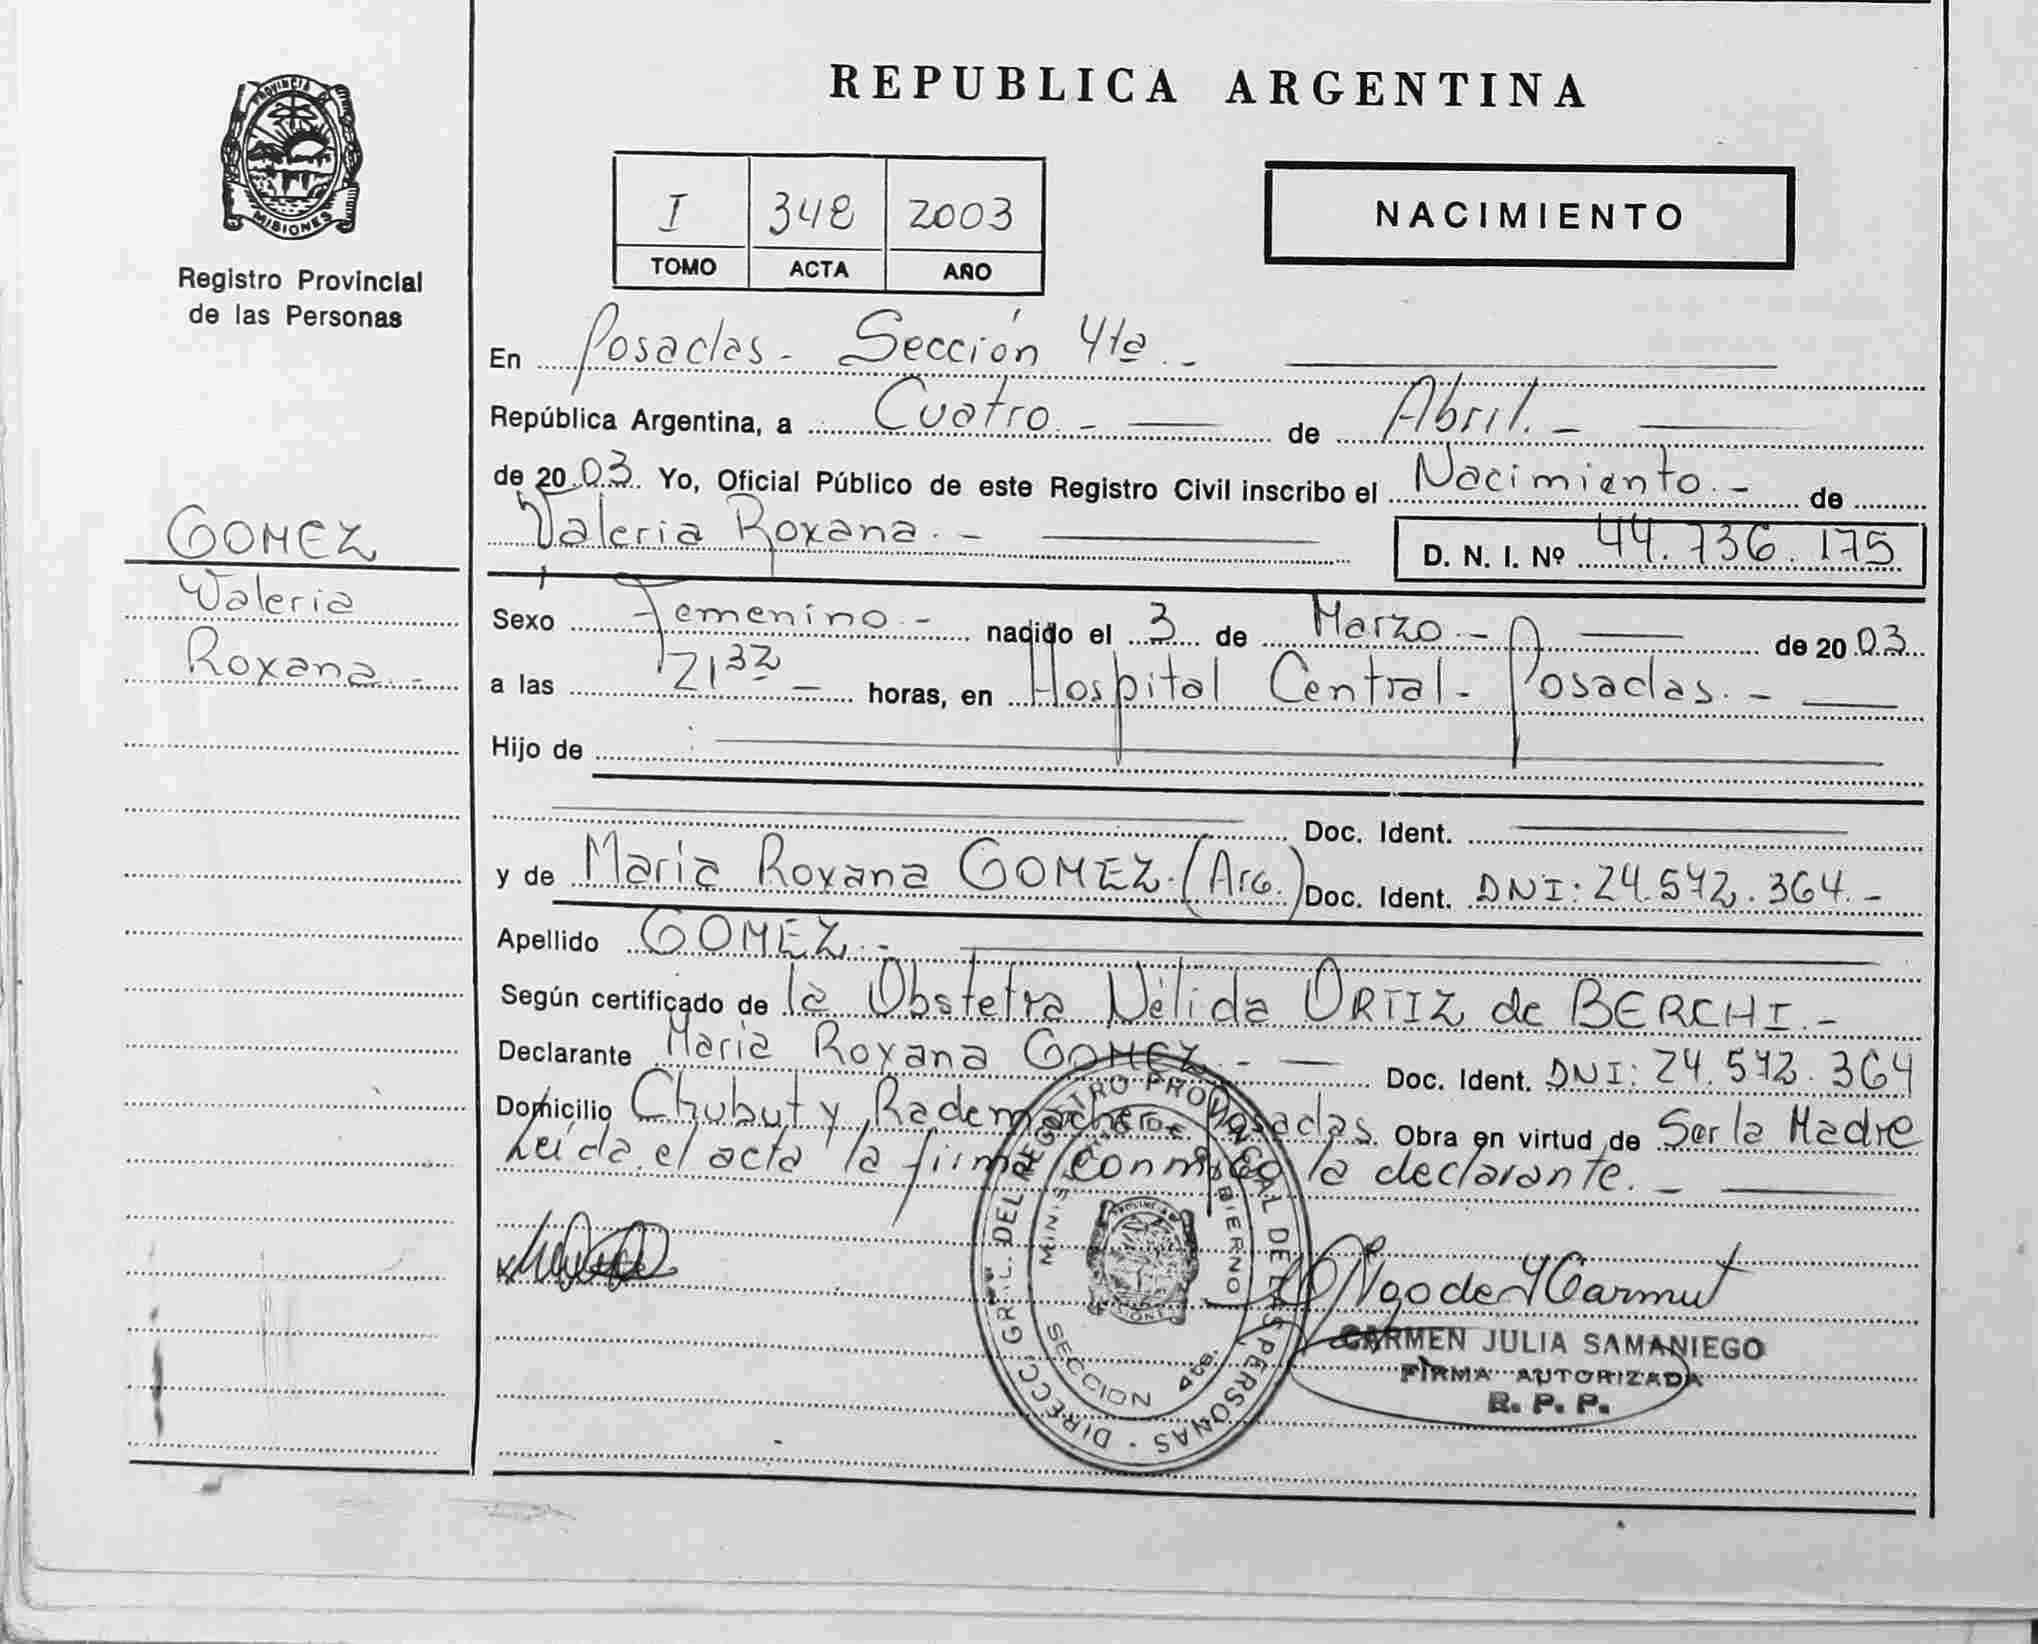 PROVINCIA DE
MISIONES
Registro Provincial
de las Personas
GOMEZ
Valeria
Roxana.-
REPUBLICA ARGENTINA
I 348 2003
TOMO ACTA AÑO
NACIMIENTO
En Posadas.- Sección 4ta.-
República Argentina, a Cuatro.- de Abril.-
de 2003 Yo, Oficial Público de este Registro Civil inscribo el Nacimiento.- de
Valeria Roxana.- D. N. I. Nº 44.736.175
Sexo Femenino.- nacido el 3 de Marzo.- de 2003
a las 21 32 - horas, en Hospital Central- Posadas.-
Hijo de
Doc. Ident.
y de Maria Roxana GOMEZ.(Arg.) Doc. Ident. DNI: 24.572.364.-
Apellido GOMEZ.-
Según certificado de la Obstetra Nélida ORTIZ de BERCHI.-
Declarante Maria Roxana GOMEZ.- Doc. Ident. DNI: 24.572.364
Domicilio Chubut y Rademacher. Posadas. Obra en virtud de Ser la Madre
Leída el acta la firma conmigo la declarante.-
DIRECC. GRAL. DEL REGISTRO PROVINCIAL DE LAS PERSONAS
MINISTERIO DE GOBIERNO
SECCION 4ta.
CARMEN JULIA SAMANIEGO
FIRMA AUTORIZADA
R. P. P.